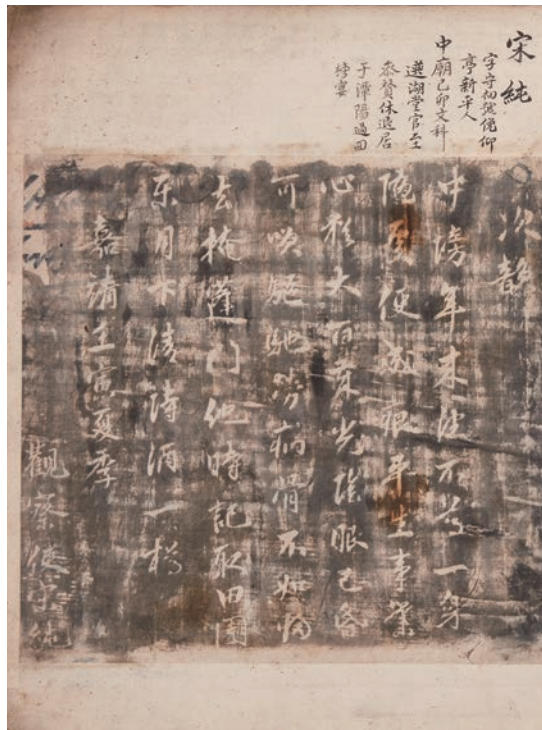 宋純
字守初號俛仰
亭新平人
中廟己卯文科
選湖堂官至
參贊休退居
于潭陽過回
榜宴
次韻
中年來一
便痕平生事業
心大百年光陰眼已昏
可嘆驅馳勞病骨不如歸
去掩蓬門他時記取田園
樂月下清詩酒一樽
嘉靖壬寅夏季
觀察使宋純